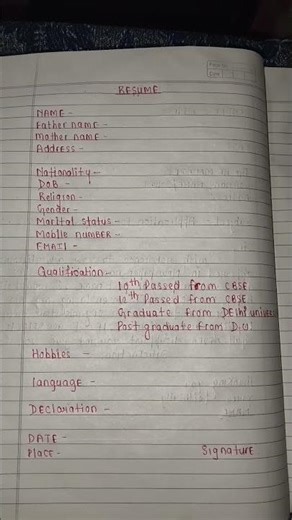 RESUME
NAME -
Father name -
Mother name -
Address -
Nationality -
DOB -
Religion -
Gender -
Marital status -
Mobile number -
EMAIL -
Qualification -
10th Passed from CBSE
12th Passed from CBSE
Graduate from DElhi univer
Post graduate from D.U.
Hobbies -
language -
DEclaration -
DATE -
Place -
Signature